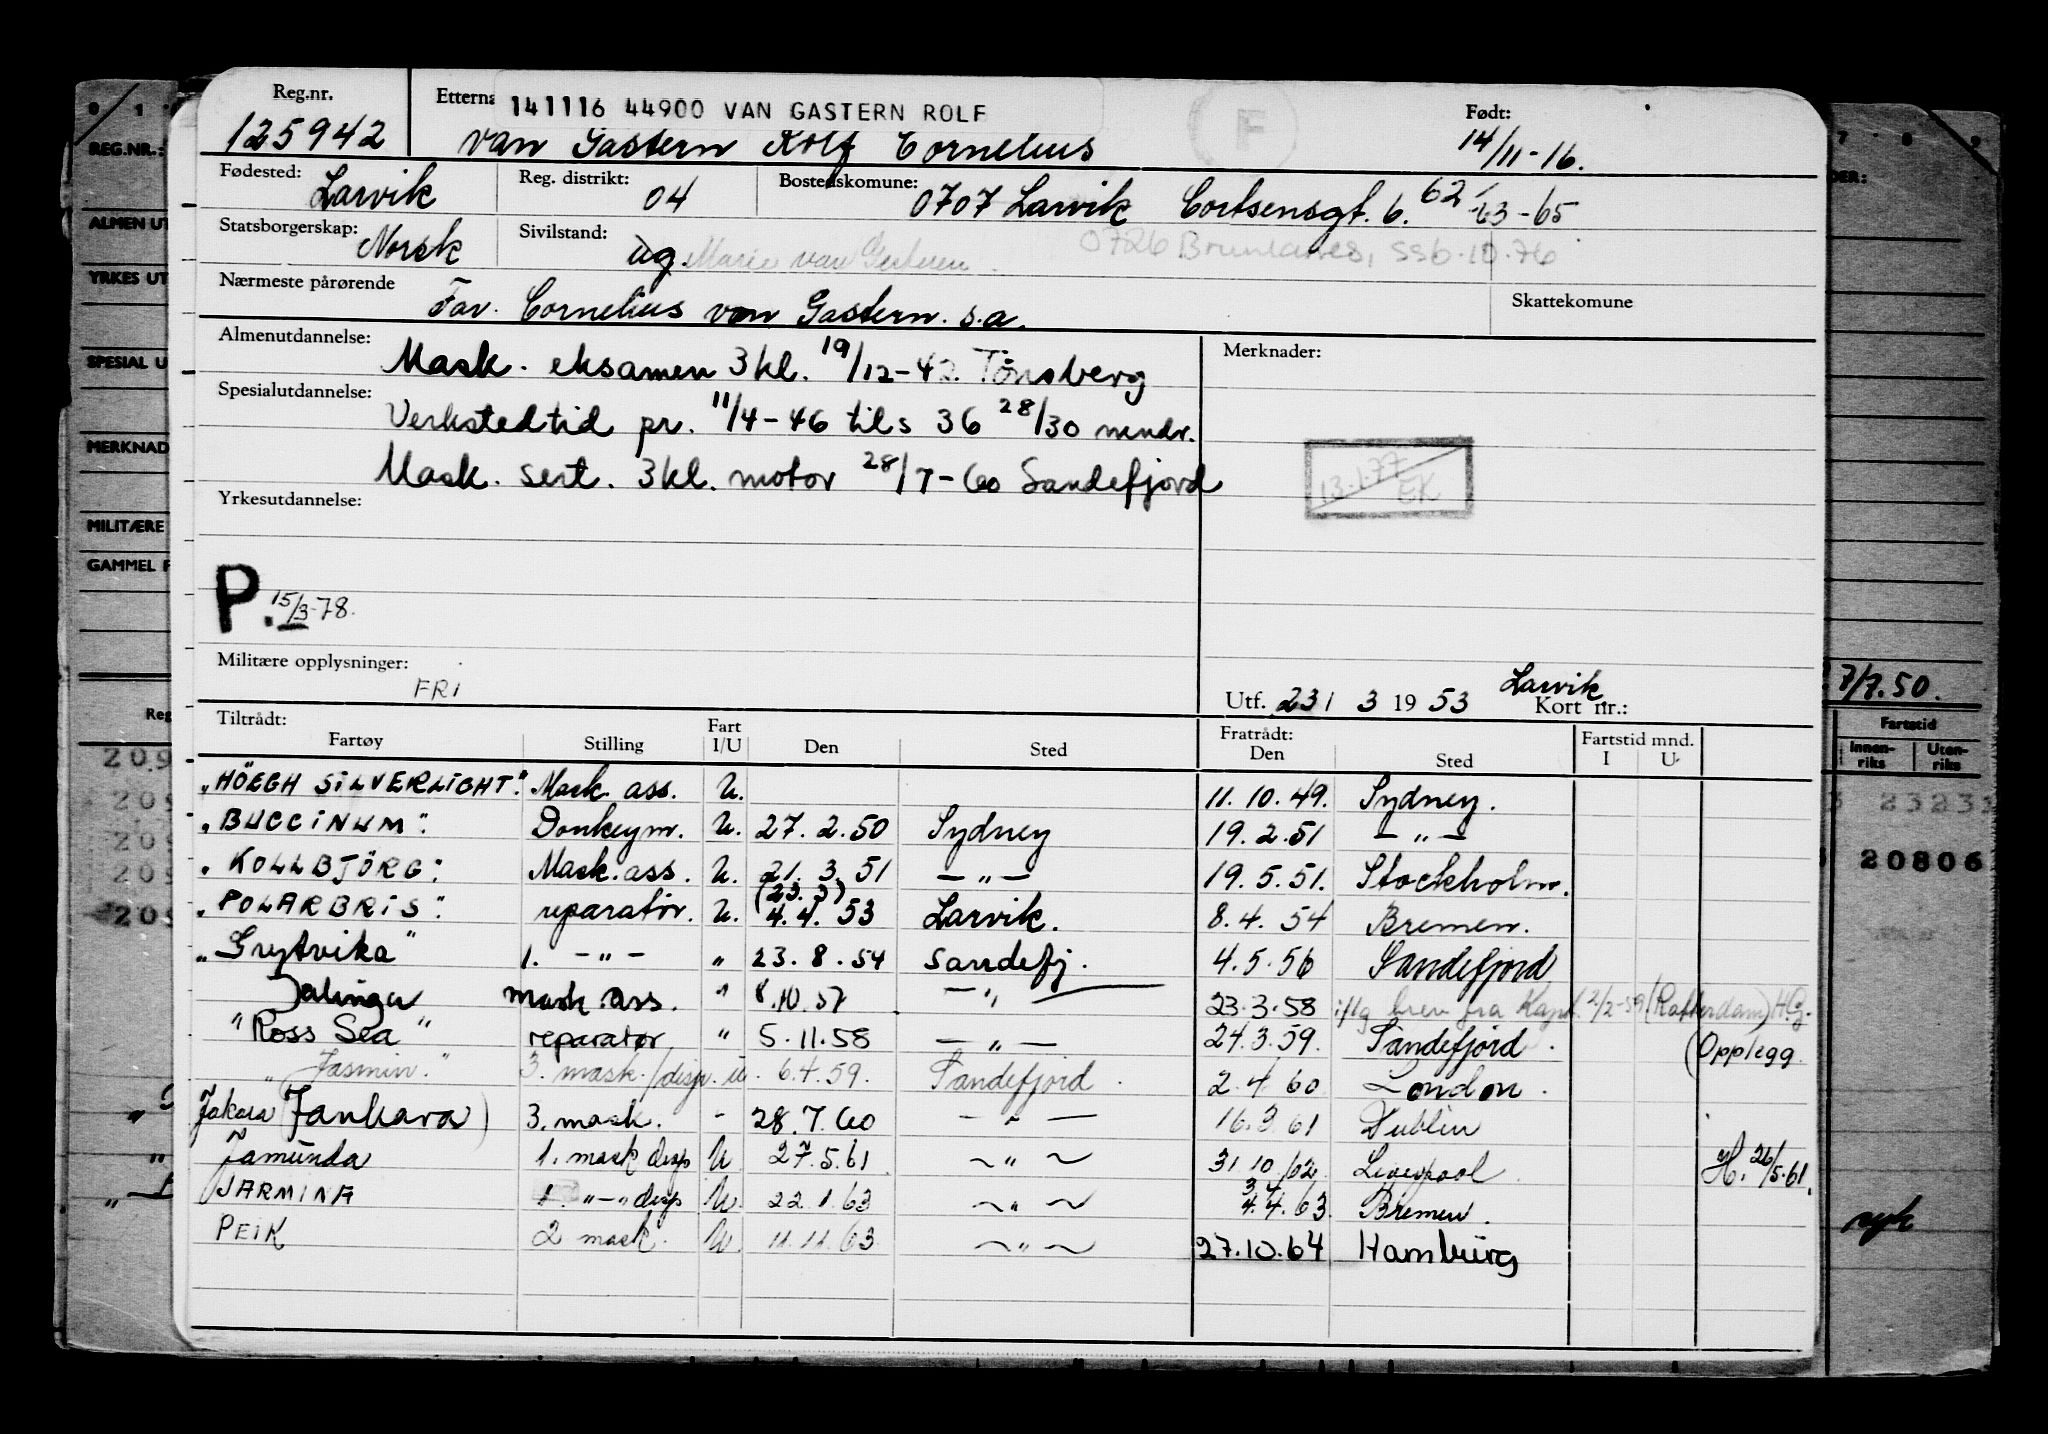 Reg.nr. Etterna 141116 44900 VAN GASTERN ROLF F Født:
125942 van Gastern Rolf Cornelius 14/11-16.
Fødested: Larvik Reg. distrikt: 04 Bostedskomune: 0707 Larvik Cortsensgt. 6. 62-63-65
Statsborgerskap: Norsk Sivilstand: ug. Marie van 0726 Brunlanes, ssb.10.76
Nærmeste pårørende Far. Cornelius van Gastern. s.a. Skattekomune
Almenutdannelse: Mask. eksamen 3kl. 19/12-42. Tönsberg Merknader:
Spesialutdannelse: Verkstedtid pr. 11/4-46 tils 36 28/30 mndr.
Mask. sert. 3kl. motor 28/7-60 Sandefjord 13.1.77 EK
Yrkesutdannelse:
P. 15/3-78.
Militære opplysninger: FRI
Utf. 23/ 3 19 53 Larvik Kort nr.:
Tiltrådt: Fartøy Stilling Fart I/U Den Sted Fratrådt: Den Sted Fartstid mnd. I U
"HÖEGH SILVERLIGHT". Mask. ass. U. 11.10.49. Sydney.
"BUCCINUM". Donkeym. U. 27.2.50 Sydney 19.2.51 — " —
"KOLLBJÖRG". Mask. ass. U. 21.3.51 — " — 19.5.51. Stockholm.
"POLARBRIS". reparatør. U. (23.3) 4.4.53 Larvik. 8.4.54 Bremen.
"Grytvika" 1. — " — " 23.8.54 Sandefj. 4.5.56 Sandefjord
Jalinga mask ass. " 8.10.57 — " — 23.3.58 iflg brev fra Kapt. 2/2-59 (Rotterdam)
"Ross Sea" reparatør " 5.11.58 — " — 24.3.59. Sandefjord. (Opplegg
"Jasmin." 3. mask./disp. u. 6.4.59. Sandefjord. 2.4.60 London.
Jakara (Jankara) 3. mask. - 28.7.60 — " — 16.3.61 Dublin
Jamunda 1. mask disp U 27.5.61 — " — 31.10.62 Liverpool. H. 26/5.61.
JARMINA 1. " — " disp U. 22.1.63 — " — 4.4.63. Bremen.
PEIK 2 mask. U. 11.11.63 — " — 27.10.64 Hamburg
0 1
REG.NR.:
ALMEN UT
YRKES UT
SPESIAL U
MERKNAD
MILITÆRE
GAMMEL F
Reg
209
209
209
209
209
7 8 9
DER:
7/7.50.
Fartstid
Innen-riks Uten-riks
2323
20806